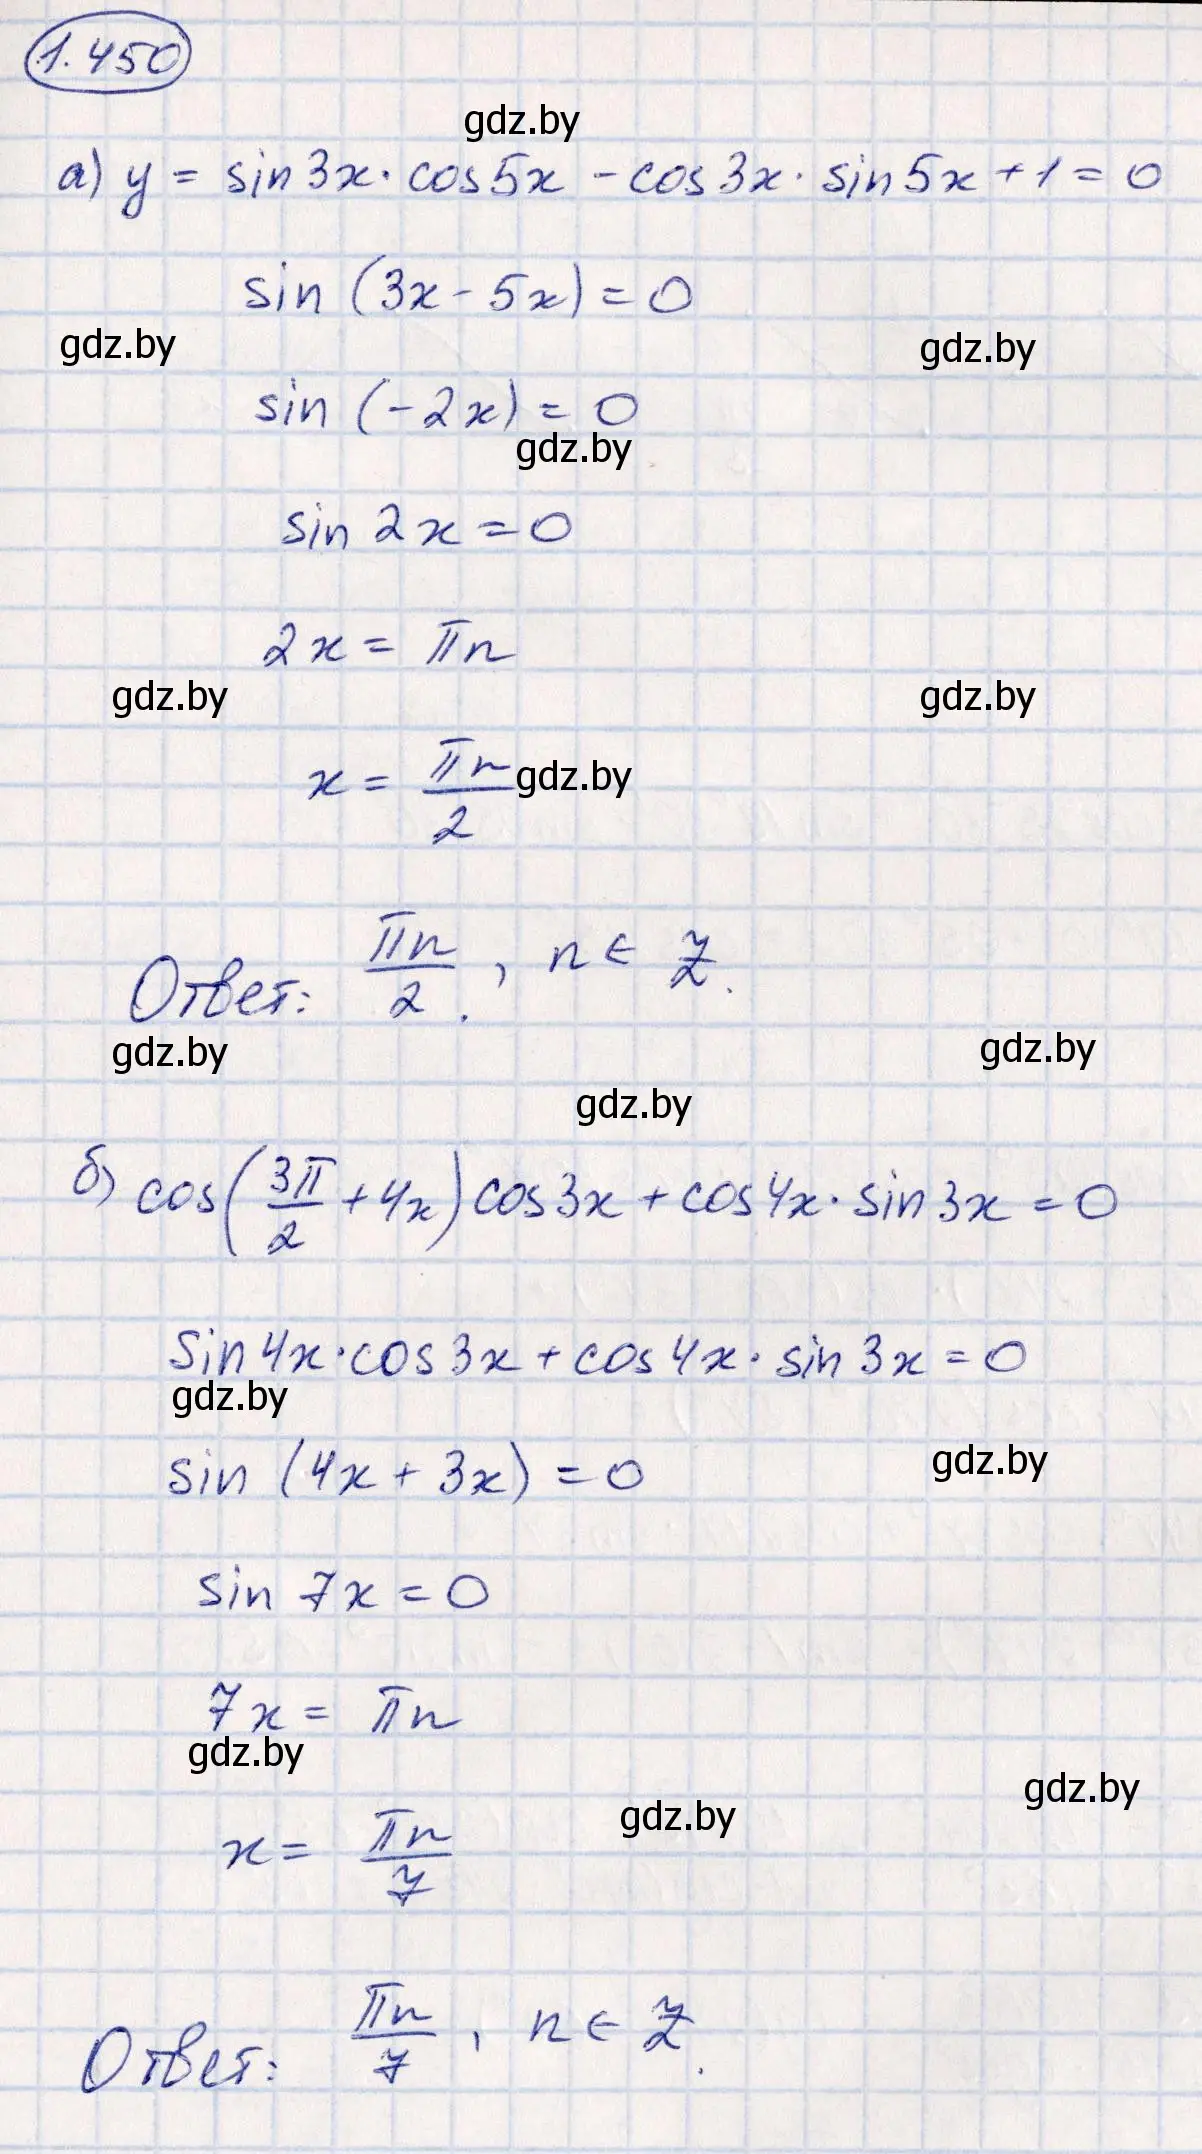 1.450
gdz.by
а) y = sin3x · cos5x - cos3x · sin5x + 1 = 0
sin (3x - 5x) = 0
gdz.by gdz.by
sin (-2x) = 0
gdz.by
sin 2x = 0
2x = πn
gdz.by gdz.by
x = πn/2 gdz.by
Ответ: πn/2, n ∈ Z.
gdz.by gdz.by
gdz.by
б) cos(3π/2 + 4x) cos3x + cos4x · sin3x = 0
sin4x · cos3x + cos4x · sin3x = 0
gdz.by
sin (4x + 3x) = 0 gdz.by
sin 7x = 0
7x = πn
gdz.by
gdz.by gdz.by
x = πn/7
Ответ: πn/7, n ∈ Z.